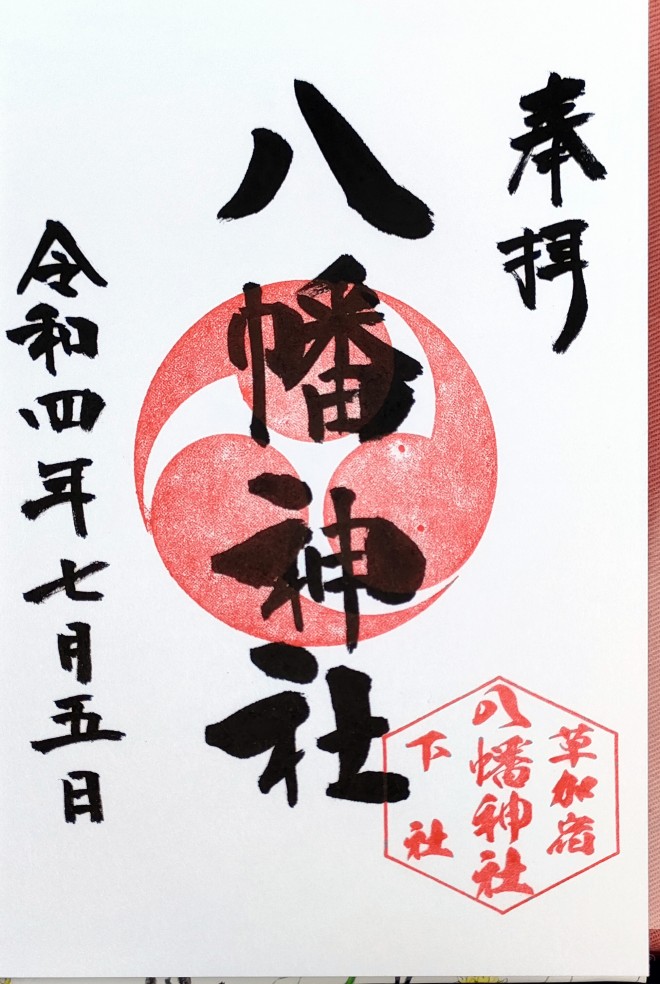 奉拝
八幡神社
令和四年七月五日
草加宿
八幡神社
下社